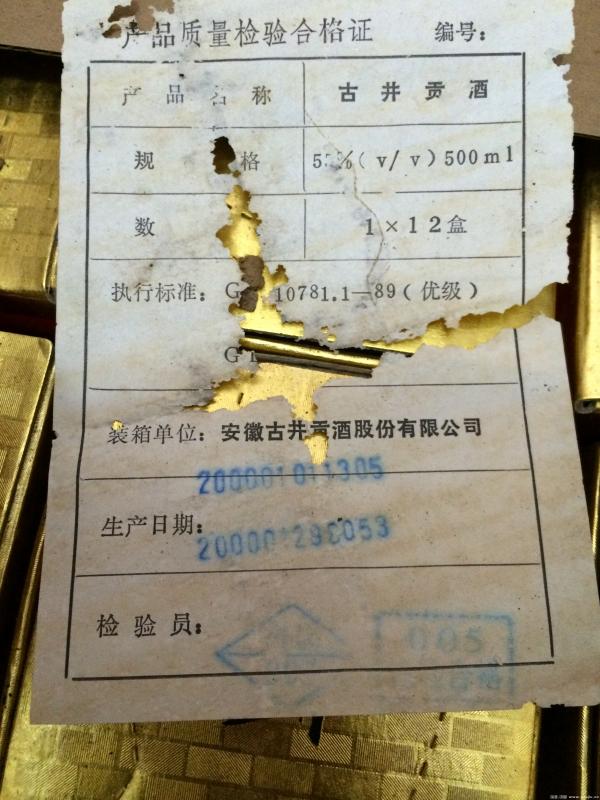 产品质量检验合格证 编号:
产品名称 古井贡酒
规格 5 %(v/v)500ml
数 1×12盒
执行标准: G 10781.1—89(优级)
G
装箱单位: 安徽古井贡酒股份有限公司
生产日期:
检验员:
005